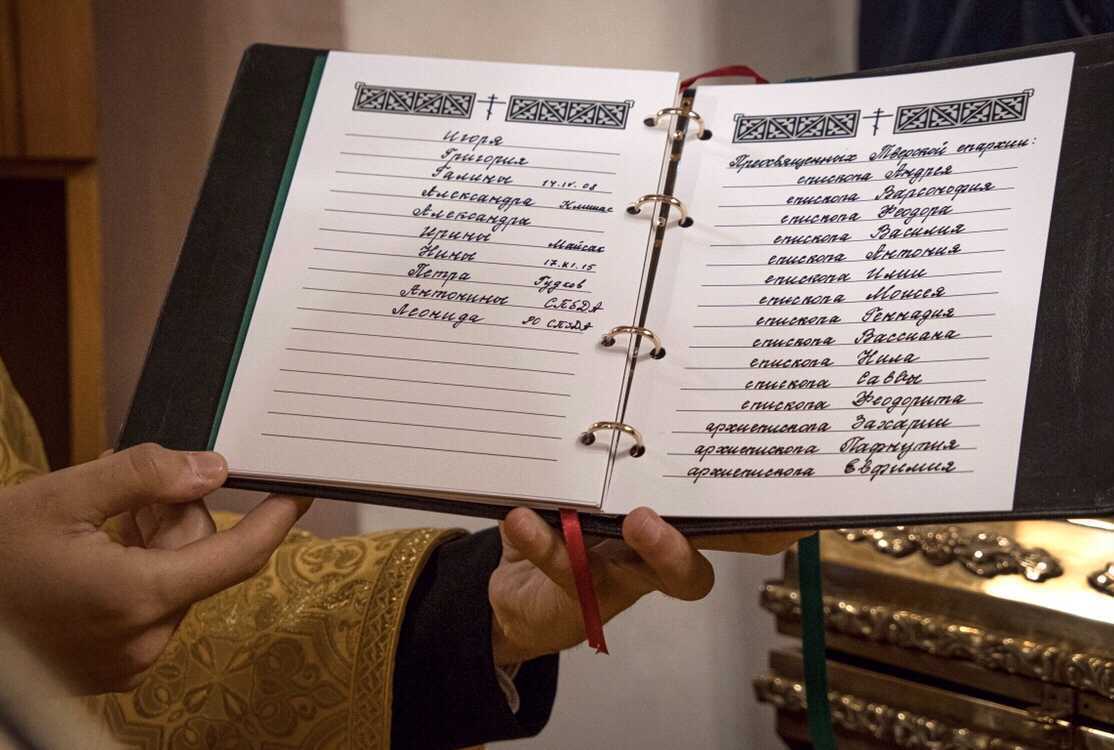 Игоря
Григория
Галины 14.IV.08
Александра Климас
Александра
Ирины Майсак
Нины 17.XI.15
Петра Гудков
Антонины СПбДА
Леонида РО СПбДА
Преосвященных Тверской епархии:
епископа Андрея
епископа Варсонофия
епископа Феодора
епископа Василия
епископа Антония
епископа Илии
епископа Моисея
епископа Геннадия
епископа Вассиана
епископа Нила
епископа Саввы
епископа Феодорита
архиепископа Захарии
архиепископа Пафнутия
архиепископа Евфимия